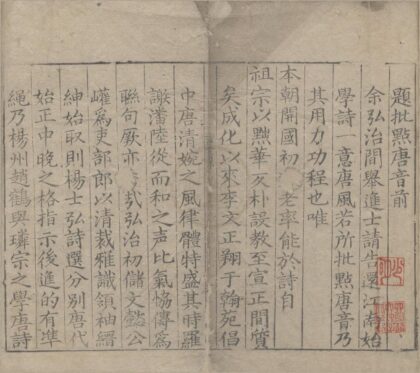 題批點唐音前
余弘治間舉進士請告還江南始
學詩一意唐風若所批點唐音乃
其用力功程也唯
本朝開國初 老率能於詩自
祖宗以黜華 朴誤教至宣正間質
矣成化以來李文正翔于翰苑倡
中唐清婉之風律體特盛其時羅
謝潘陸從而和之声比氣恊傳爲
聯句厥亦 弘治初儲文懿公
巏爲吏部郎以清裁雅識領袖縉
紳始取則楊士弘詩選分別唐代
始正中晚之格指示後進的有準
繩乃楊州趙鶴與璘宗之學唐詩